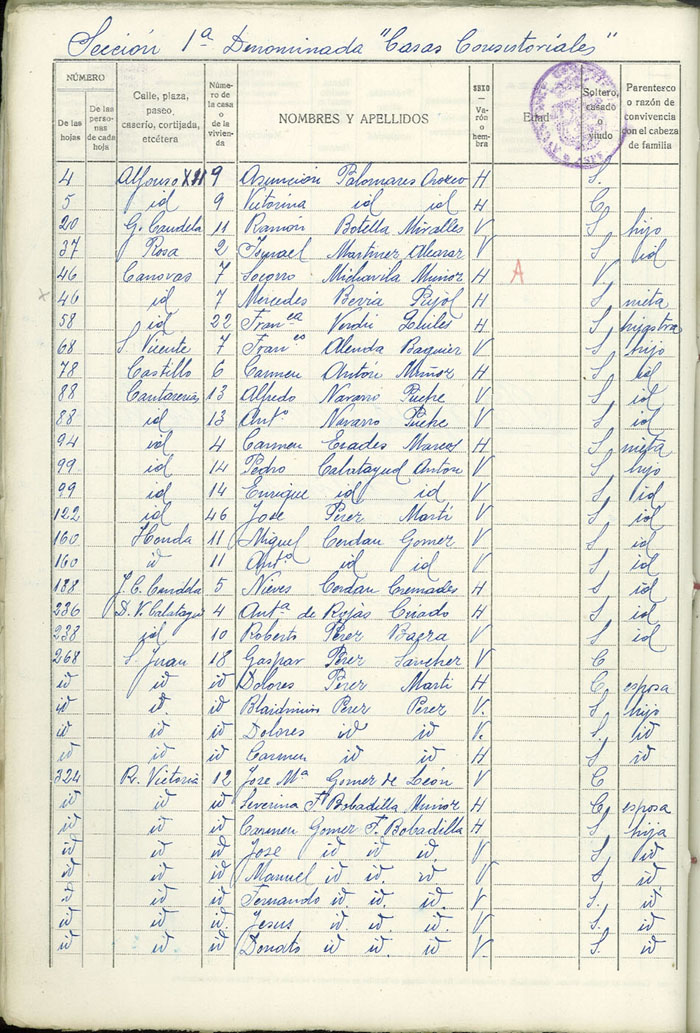 Sección 1ª Denominada "Casas Consistoriales"
NÚMERO
De las hojas
De las personas de cada hoja
Calle, plaza, paseo, caserío, cortijada, etcétera
Número de la casa o de la vivienda
NOMBRES Y APELLIDOS
SEXO — Varón o hembra
Edad
Soltero, casado o viudo
Parentesco o razón de convivencia con el cabeza de familia
4 Alfonso XIII 9 Asunción Palomares Orozco H S.
5 id 9 Victorina id id H C.
20 G. Candela 11 Ramón Botella Miralles V S, hijo
37 Rosa 2 Ismael Martinez Alcaraz V S, id
46 Canovas 7 Socorro Michavila Muñoz H A V.
46 id 7 Mercedes Berria Pujol H S, nieta
58 id 22 Franca Verdú H S, hijastra
68 S. Vicente 7 Franco Alenda V S, hijo
78 Castillo 6 Carmen Antón Muñoz H S, id
88 Cantarerias 13 Alfredo Navarro Puche V S, id
88 id 13 Antº Navarro Puche V S, id
94 id 4 Carmen Erades Marcos H S, nieta
99 id 14 Pedro Calatayud Antón V S, hijo
99 id 14 Enrique id id V S, id
122 id 46 Jose Perez Martí V S, id
160 Honda 11 Miguel Cerdan Gomez V S, id
160 id 11 Antº id id V S, id
188 J. C. Candela 5 Nieves Cerdan Cremades H S, id
236 D. V. Calatayu 4 Antª de Rojas Criado H S, id
238 id 10 Roberto Perez Baeza V S, id
268 S. Juan 18 Gaspar Perez Sanchez V C
id id id Dolores Perez Marti H C, esposa
id id id Perez Perez V. S, hijo
id id id Dolores id id V. S, id
id id id Carmen id id H S, id
324 Rª Victoria 12 Jose Mª Gomez de León V C
id id id Severina Fª Bobadilla Muñoz H C, esposa
id id id Carmen Gomez F. Bobadilla H S, hija
id id id Jose id id id. V S, id.
id id id Manuel id id. id V S, id
id id id Fernando id. id. id. V S. id.
id id id Jesus id. id. id. V S. id
id id id Donato id id id V. S. id